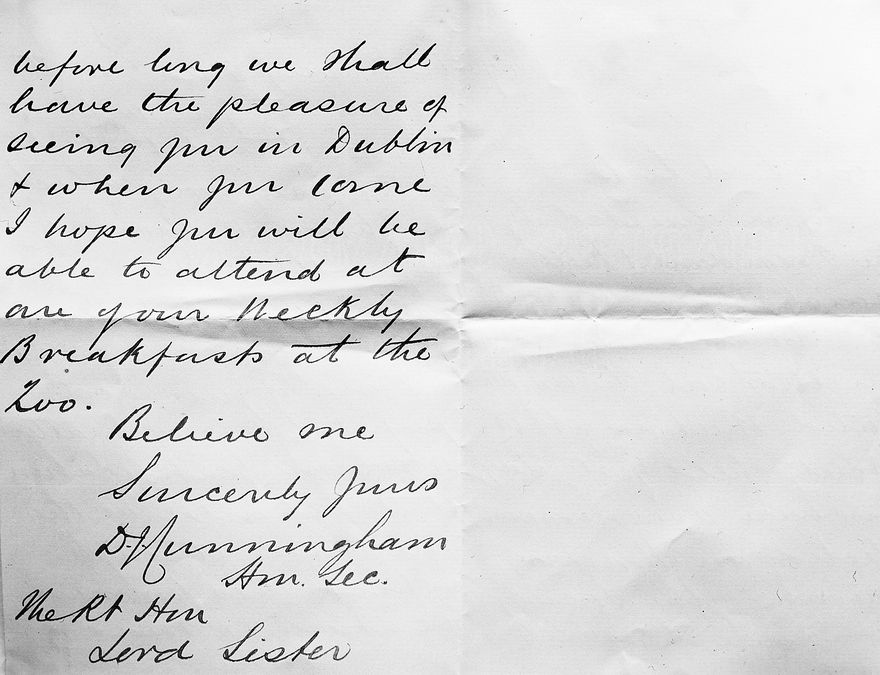 before long we shall
have the pleasure of
seeing you in Dublin
& when you come
I hope you will be
able to attend at
one of our Weekly
Breakfasts at the
Zoo.
Believe me
Sincerely yours
D.J. Cunningham
Hon. Sec.
The Rt Hon
Lord Lister